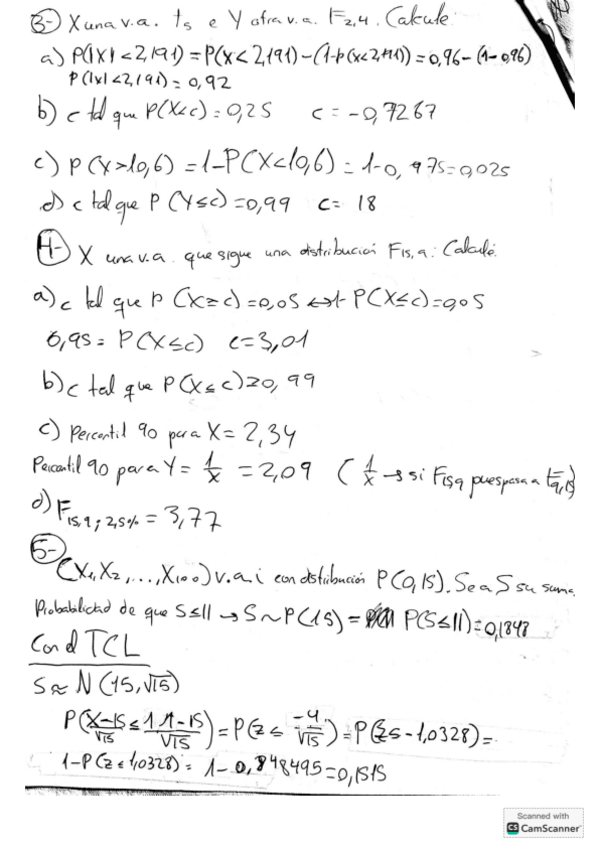 3- X una v.a. t5 e Y otra v.a. F2,4. Calcule:
a) P(|X| < 2,191) = P(X < 2,191) - (1-P(X < 2,191)) = 0,96 - (1-0,96)
P(|X| < 2,191) = 0,92
b) c tal que P(X<c) = 0,25 c = -0,7267
c) P(Y>10,6) = 1-P(X<10,6) = 1-0,975=0,025
d) c tal que P(Y≤c)=0,99 c= 18
4- X una v.a. que sigue una distribución F15,9. Calcule:
a) c tal que P(X≥c)=0,05 ↔ 1-P(X≤c)=0,05
0,95 = P(X≤c) c=3,01
b) c tal que P(X≤c)=0,99
c) Percentil 90 para X = 2,34
Percentil 90 para Y = 1/X = 2,09 (1/X → si F15,9 pues pasa a F9,15)
d) F15,9; 2,5% = 3,77
5-
(X1, X2, ..., X100) v.a.i con distribución P(0,15). Sea S su suma.
Probabilidad de que S≤11 → S~P(15) = P(S≤11)=0,1848
Con el TCL
S≈N(15,√15)
P(X-15/√15 ≤ 11-15/√15) = P(Z ≤ -4/√15) = P(Z≤-1,0328) =
1-P(Z≤1,0328) = 1-0,848495=0,1515
Scanned with
CS CamScanner